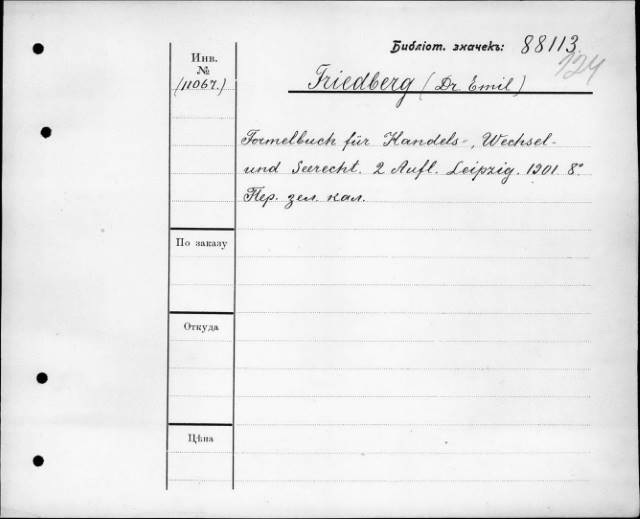 Библіот. значекъ: 88113.
124
Инв.
№
(11067.)
Friedberg (Dr. Emil)
Formelbuch für Handels-, Wechsel-
und Seerecht. 2 Aufl. Leipzig. 1901. 8°
Пер. зел. кал.
По заказу
Откуда
Цѣна